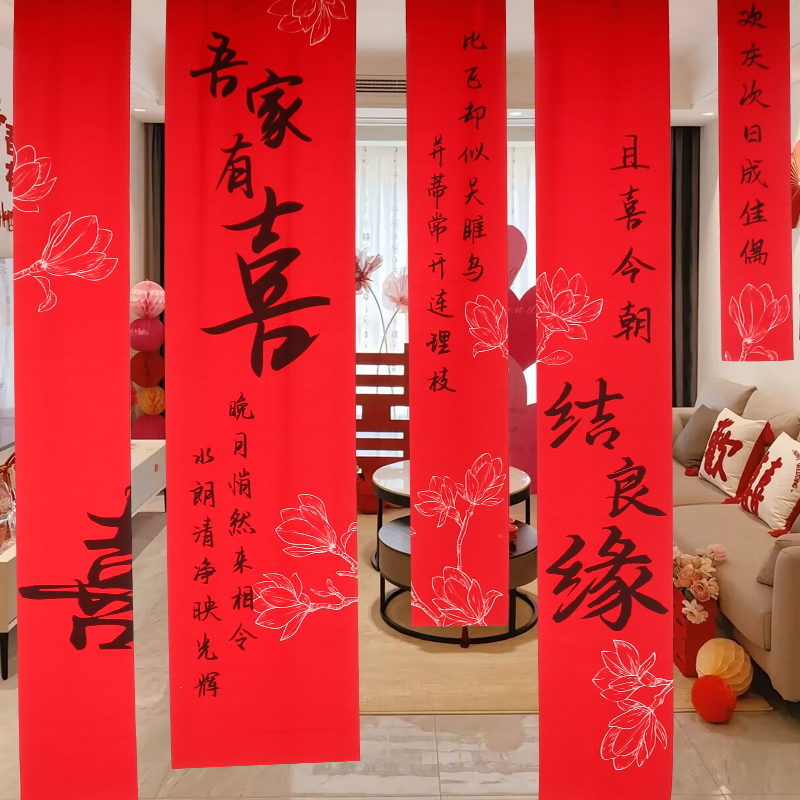 喜
吾家有喜
晚月悄然来相令
水朗清净映光辉
比飞却似关雎鸟
并蒂常开连理枝
且喜今朝
结良缘
欢庆次日成佳偶
歡
喜